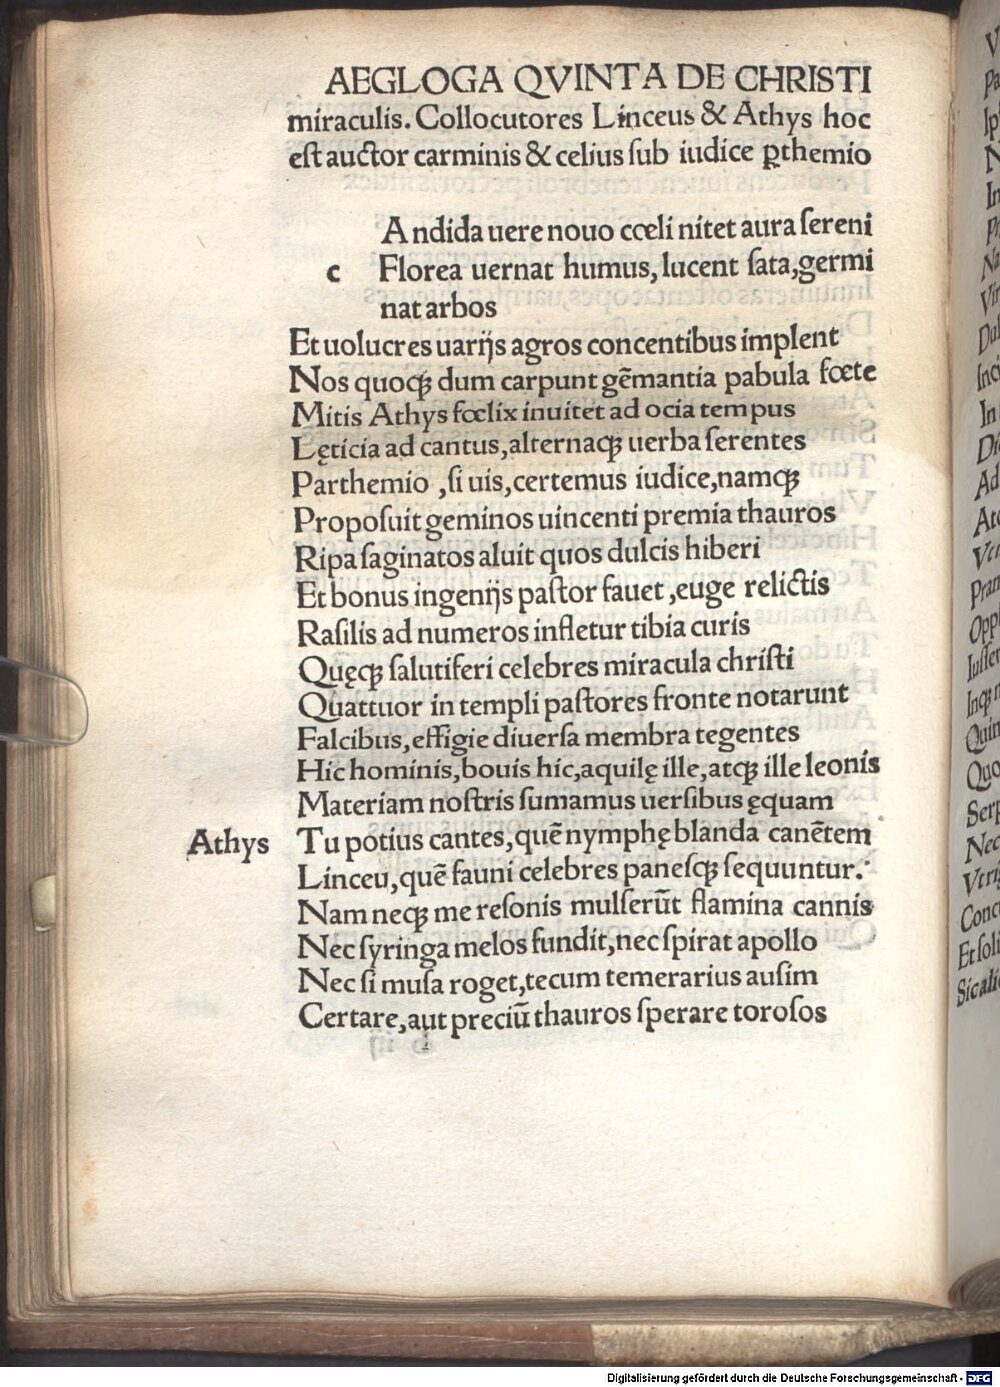 AEGLOGA QVINTA DE CHRISTI
miraculis. Collocutores Linceus & Athys hoc
eſt auctor carminis & celius ſub iudice ꝑthemio
Andida uere nouo cœli nitet aura ſereni
c Florea uernat humus, lucent ſata, germi
nat arbos
Et uolucres uarijs agros concentibus implent
Nos quoqꝫ dum carpunt gēmantia pabula fœte
Mitis Athys fœlix inuitet ad ocia tempus
Lęticia ad cantus, alternaqꝫ uerba ferentes
Parthemio, ſi uis, certemus iudice, namqꝫ
Propoſuit geminos uincenti premia thauros
Ripa ſaginatos aluit quos dulcis hiberi
Et bonus ingenijs paſtor fauet, euge relictis
Raſilis ad numeros infletur tibia curis
Quęqꝫ ſalutiferi celebres miracula chriſti
Quattuor in templi paſtores fronte notarunt
Falcibus, effigie diuerſa membra tegentes
Hic hominis, bouis hic, aquilę ille, atqꝫ ille leonis
Materiam noſtris ſumamus uerſibus ęquam
Athys Tu potius cantes, quē nymphę blanda canētem
Linceu, quē fauni celebres paneſqꝫ ſequuntur.
Nam neqꝫ me reſonis mulſerūt flamina cannis
Nec ſyringa melos fundit, nec ſpirat apollo
Nec ſi muſa roget, tecum temerarius auſim
Certare, aut preciū thauros ſperare toroſos
Digitalisierung gefördert durch die Deutsche Forschungsgemeinschaft - DFG